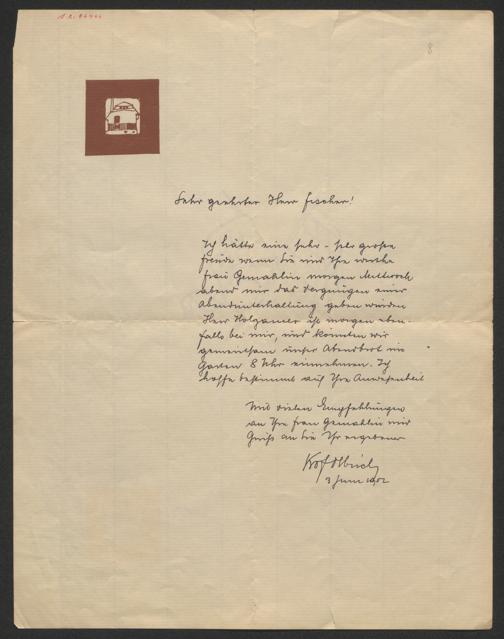 8
Sehr geehrter Herr Fischer!
Ich hätte eine sehr – sehr große
Freude wenn Sie und Ihre werthe
Frau Gemahlin morgen Mittwoch
abend mir das Vergnügen einer
Abendunterhaltung geben würden
Herr Holzamer ist morgen eben-
falls bei mir, und könnten wir
gemeinsam unser Abendbrot im
Garten 8 Uhr einnehmen. Ich
hoffe bestimmt auf Ihre Anwesenheit
Mit vielen Empfehlungen
an Ihre Frau Gemahlin und
Gruß an Sie Ihr ergebener
Olbrich
3 Juni 1902